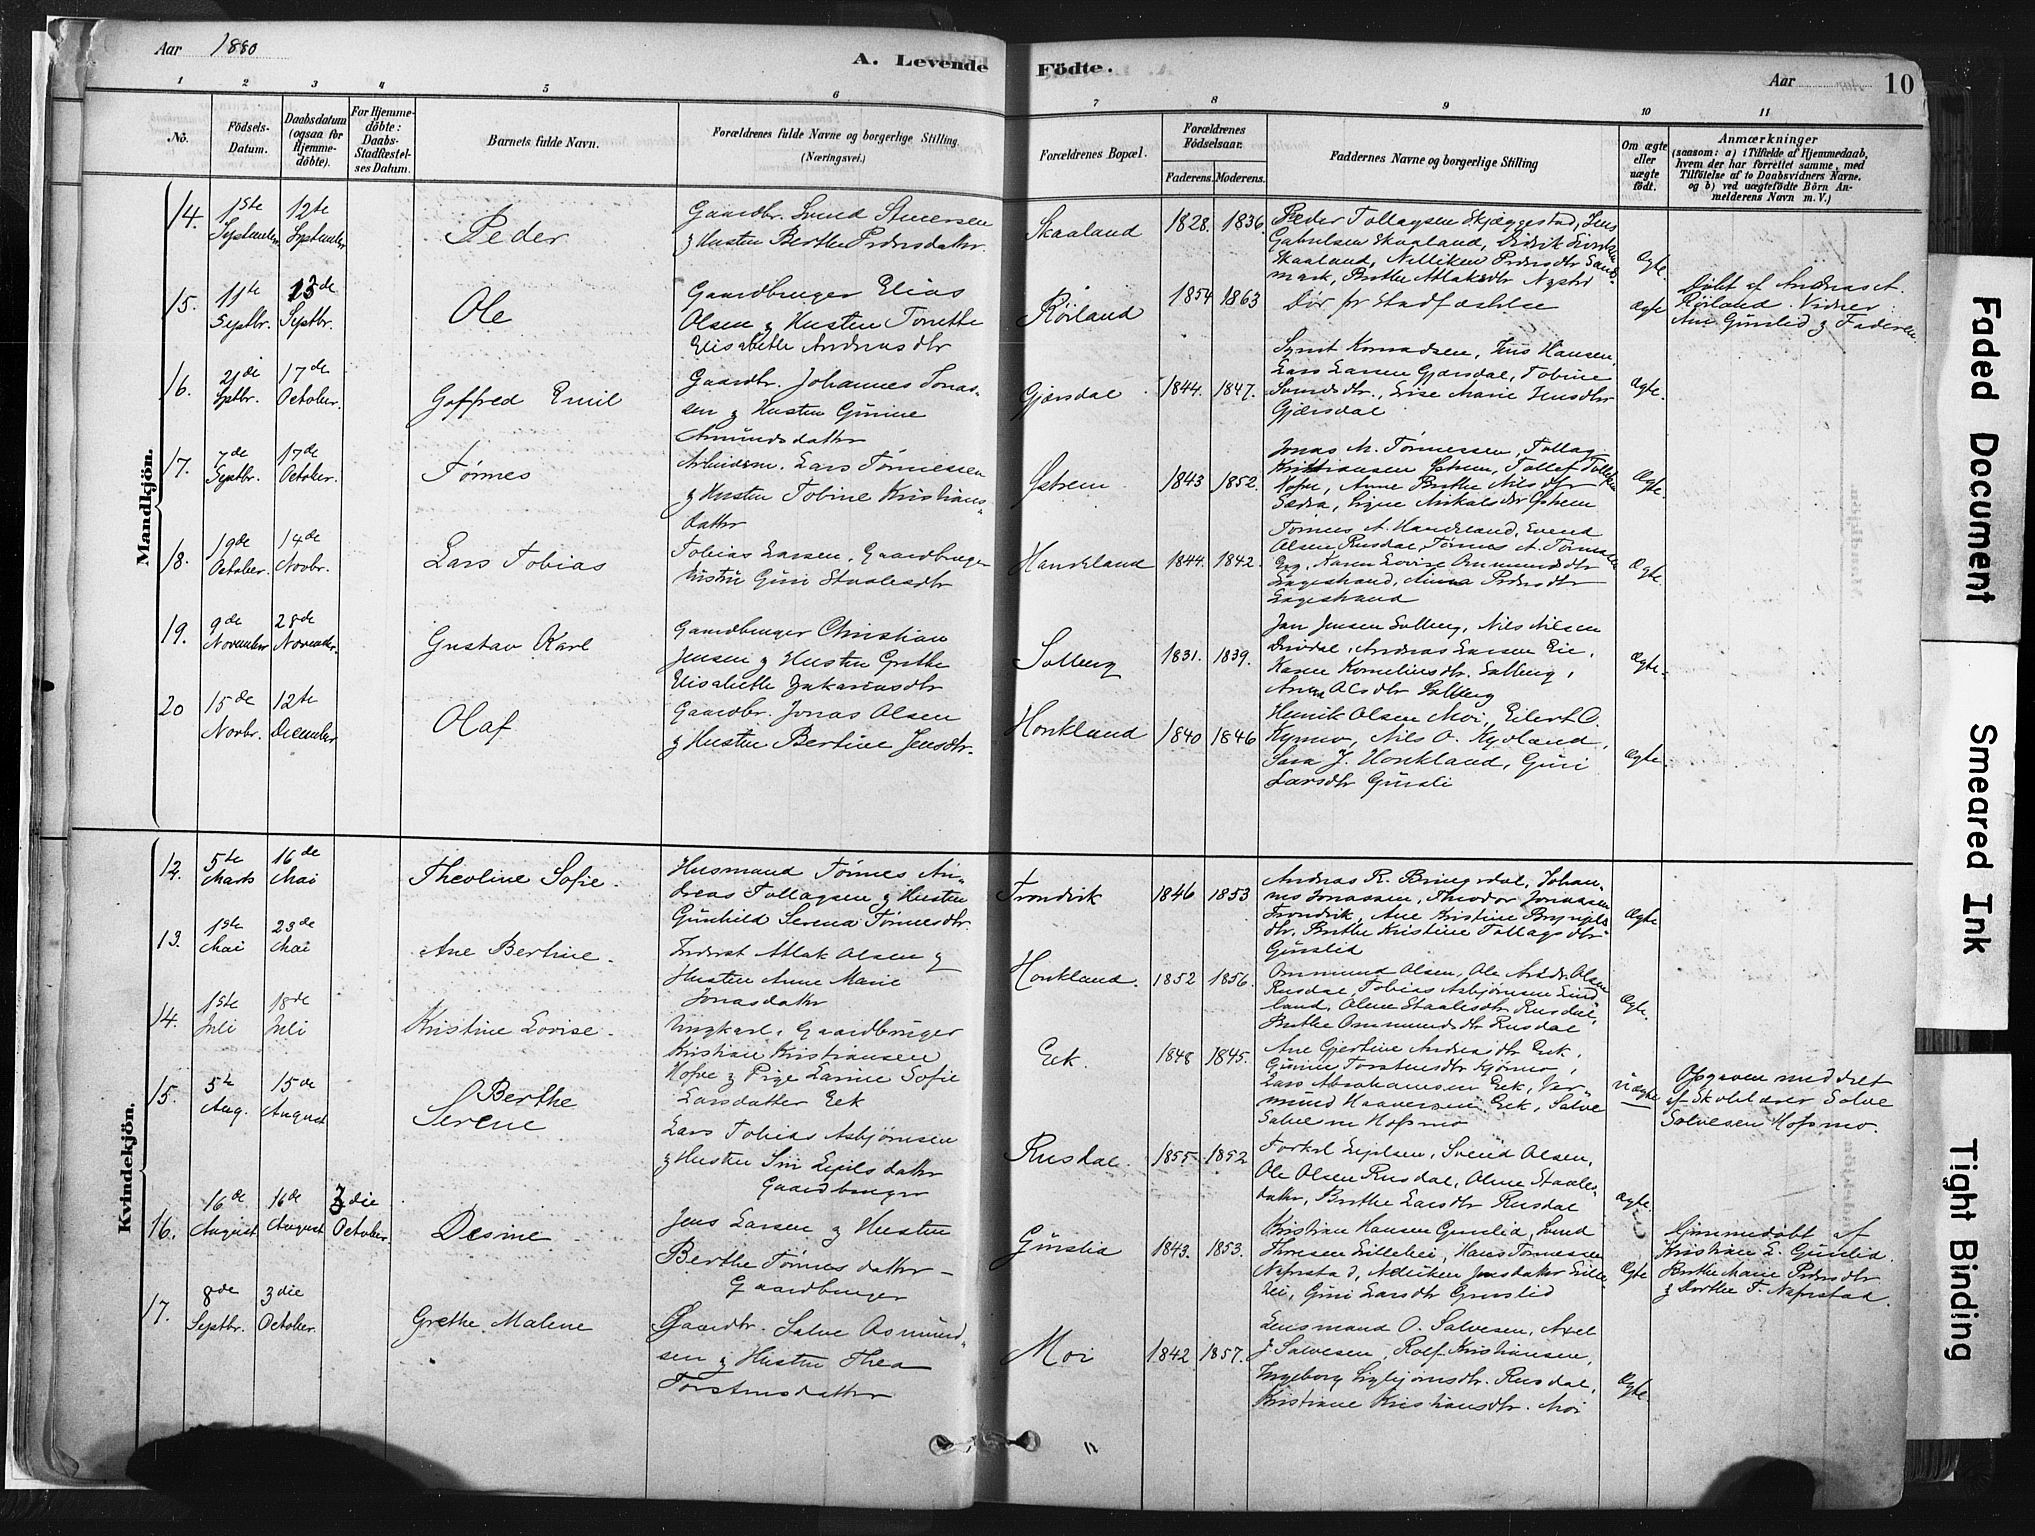 Aar 1880
A. Levende
Födte.
Aar
10
1 2 3 4 5 6 7 8 9 10 11
No.
Födsels-
Datum.
Daabsdatum
(ogsaa for
Hjemme-
döbte).
For Hjemme-
döbte:
Daabs-
Stadfæstel-
ses Datum.
Barnets fulde Navn.
Forældrenes fulde Navne og borgerlige Stilling
(Næringsvei.)
Forældrenes Bopæl.
Forældrenes
Födselsaar.
Faderens. Moderens.
Faddernes Navne og borgerlige Stilling
Om ægte
eller
uægte
født.
Anmærkninger
(saasom: a) i Tilfælde af Hjemmedaab,
hvem der har forrettet samme, med
Tilföielse af to Daabsvidners Navne.
og b) ved uægtefödte Börn An-
melderens Navn m. V.)
Mandkjön.
14.
1ste
September
12te
September
Peder
Gaardbr. Svend Siversen
& Hustru Berthe Pedersdatter.
Skaaland
1828. 1836.
Peder Tollagsen Skjæggestad, Jens
Gabrielsen Skaaland, Didrik
Skaaland, Pedersdtr
Berthe Atlaksdtr
Ægte.
15.
11te
Septbr.
13de
Septbr.
Ole
Gaardbruger Elias
Olsen & Hustru Tonette
Elisabeth Andreasdtr
Röiland
1854 1863
Dör för Stadfæstelse
Ægte
Döbt af Andreas A.
Röiland. Vidner
Ane Gunslid & Faderen
16.
21de
Septbr.
17de
October.
Gotfred Emil
Gaardbr. Johannes Jonas-
sen & Hustru Gunine
Amundsdatter
Gjærsdal
1844. 1847.
Konradsen, Jens Hansen,
Lars Larsen Gjærsdal, Tobine
Marie Jensdtr
Gjærsdal
Ægte.
17.
7de
Septbr.
17de
October.
Tørnes
Arbeidsm. Lars Tørnessen
& Hustru Tobine Kristians-
datter
Ystrem
1843 1852.
Jonas M. Tørnessen, Tollag
Kristiansen Ystrem, Tollef Tollefsen
Anne Berthe Nilsdtr
Sædra, Signe Ystrem
Ægte.
18.
19de
October.
14de
Novbr.
Lars Tobias
Tobias Larsen, Gaardbruger
Hustru Guri Staalesdtr
Hauckland
1844. 1842.
Tørnes A. Hauckland, Svend
Olsen Rusdal, Tørnes A.
Eeg, Karen Lovise Ommundsdtr
Lagestrand, Anna Pedersdtr
Lagestrand
Ægte
19.
9de
November
28de
November.
Gustav Karl
Gaardbruger Christian
Jensen & Hustru Grethe
Elisabeth Zakariasdtr
Solberg
1831. 1839.
Jan Jensen Solberg, Nils Nilsen
Andreas Larsen Eie,
Karen Korneliusdtr. Solberg,
Anna Olsdtr Solberg
Ægte.
20
15de
Novbr.
12te
December
Olaf
Gaardbr. Jonas Olsen
& Hustru Bertine Jensdtr.
Honkland
1840 1846
Henrik Olsen Moi, Eilert C.
Nils O. Kydland,
Sara J. Honkland, Guri
Larsdtr Gunsli
Ægte.
Kvindekjön.
12.
5te
Marts
16de
Mai
Theoline Sofie.
Husmand Tørnes An-
dreas Tollagsen & Hustru
Gunhild Serena Tørnesdtr.
Trondvik
1846 1853
Andreas R. Bringsdal, Johan-
nes Jonassen, Theodor Jonassen
Trondvik, Ane Kristine
dtr. Berthe Kristine Tollagsdtr
Gunslid
Ægte
13.
1ste
Mai
23de
Mai
Ane Bertine.
Inderst Atlak Olsen &
Hustru Anne Marie
Jonasdatter
Honkland.
1852 1856.
Ommund Olsen, Ole Olsen
Rusdal, Tobias Asbjørnsen Lind
land, Olene Staalesdtr Rusdal,
Berthe Ommundsdtr Rusdal
Ægte.
14.
1ste
Juli
18de
Juli
Kristine Lovise.
Ungkarl, Gaardbruger
Kristian Kristiansen
Hofve & Pige Larine Sofie
Larsdatter Eek
Eek.
1848 1845.
Ane Gjertine Andreasdtr Eek,
Gunne Torstensdtr Kjørmo,
Lars Abrahamsen Eek, Ver-
mund Haaversen Eek, Salve
Salvesen Hofsmo
Uægte
Opgaven meddelt
af Skolelærer Salve
Salvesen Hofsmo.
15.
5te
Aug.
15de
August
Berthe
Serene
Lars Tobias Asbjørnsen
& Hustru Siri Eyelsdatter
Gaardbruger
Rusdal.
1855 1852
Torkel Svend Olsen,
Ole Olsen Rusdal, Olene Staales-
datter, Berthe Larsdtr Rusdal
Ægte.
16.
16de
August
16de
August
3die
October.
Desine
Jens Larsen & Hustru
Berthe Tørnesdatter –
Gaardbruger
Gunslid
1843. 1853.
Kristian Hansen Gunslid, Svend
Thoresen Lillebei, Hans Tørnessen
Nafrstad, Jensdatter Lille
bei, Guri Larsdtr Gunslid
Ægte
Hjemmedöbt af
Kristian L. Gunslid.
Berthe Marie Pedersdtr
& Dorthe T. Nafrstad.
17.
8de
Septbr.
3die
October.
Grethe Malene
Gaardbr. Salve Osmund-
sen & Hustru Thea
Torstensdatter
Moi
1842 1857.
Lensmand O. Salvesen, Axel
J. Salvesen, Rolf Kristiansen,
Ingeborg Sigbjørnsdtr. Rusdal,
Kristiane Kristiansdtr. Moi
Ægte.
Faded Document
Smeared Ink
Tight Binding